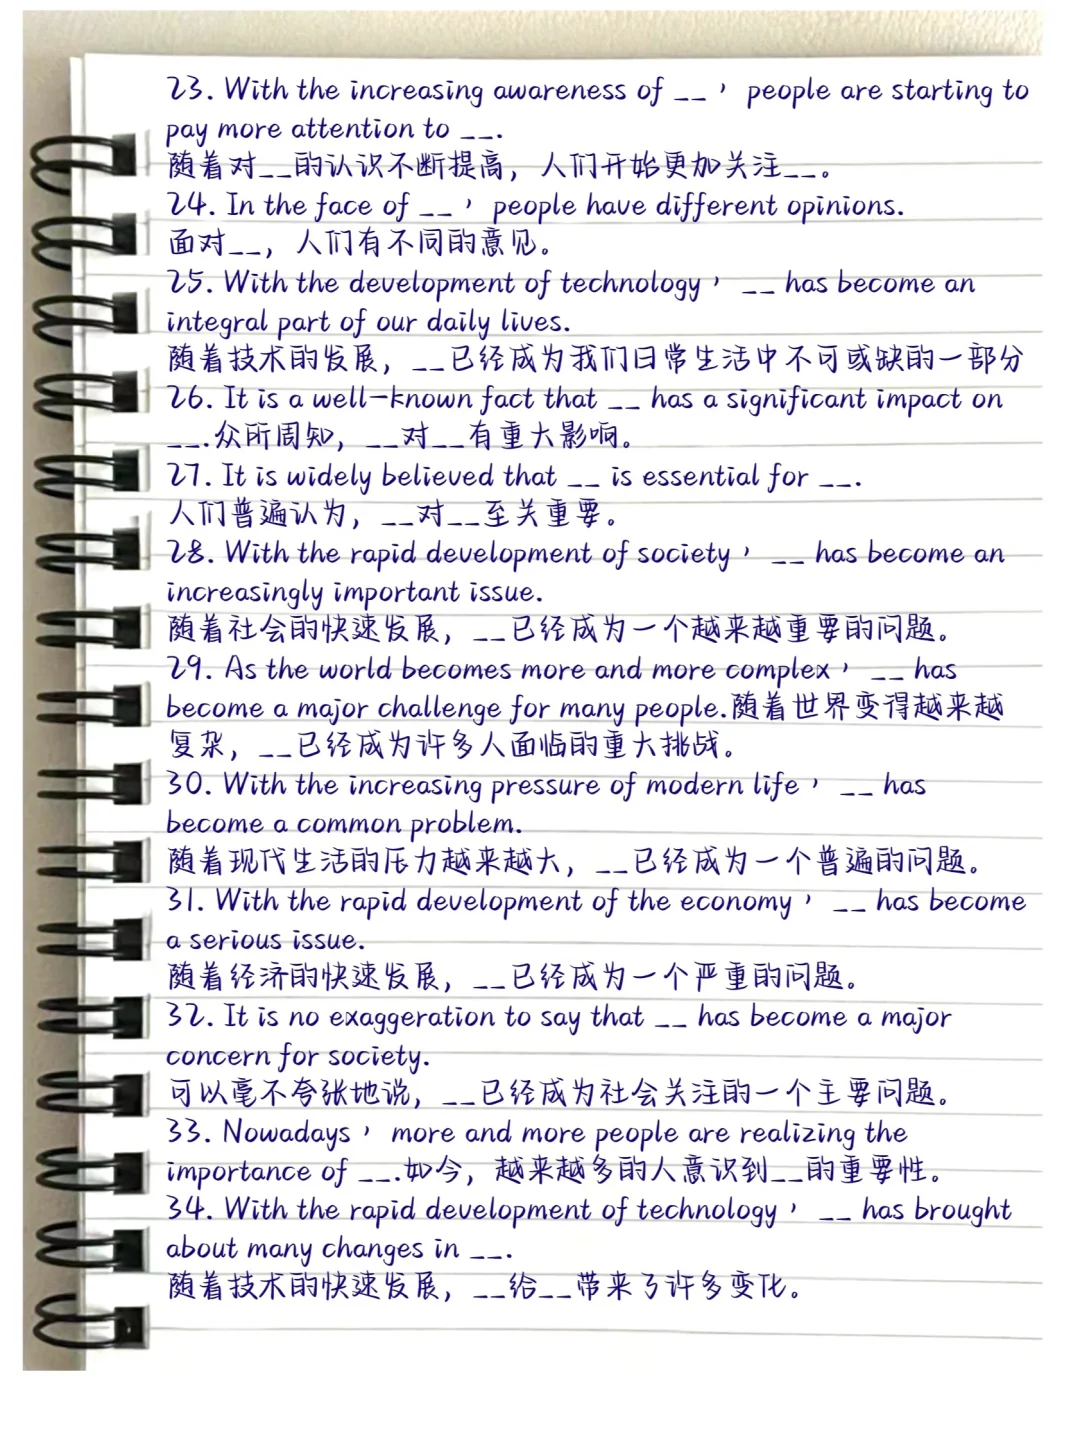 23. With the increasing awareness of __， people are starting to
pay more attention to __.
随着对__的认识不断提高，人们开始更加关注__。
24. In the face of __， people have different opinions.
面对__，人们有不同的意见。
25. With the development of technology， __ has become an
integral part of our daily lives.
随着技术的发展，__已经成为我们日常生活中不可或缺的一部分
26. It is a well-known fact that __ has a significant impact on
__.众所周知，__对__有重大影响。
27. It is widely believed that __ is essential for __.
人们普遍认为，__对__至关重要。
28. With the rapid development of society， __ has become an
increasingly important issue.
随着社会的快速发展，__已经成为一个越来越重要的问题。
29. As the world becomes more and more complex， __ has
become a major challenge for many people.随着世界变得越来越
复杂，__已经成为许多人面临的重大挑战。
30. With the increasing pressure of modern life， __ has
become a common problem.
随着现代生活的压力越来越大，__已经成为一个普遍的问题。
31. With the rapid development of the economy， __ has become
a serious issue.
随着经济的快速发展，__已经成为一个严重的问题。
32. It is no exaggeration to say that __ has become a major
concern for society.
可以毫不夸张地说，__已经成为社会关注的一个主要问题。
33. Nowadays， more and more people are realizing the
importance of __.如今，越来越多的人意识到__的重要性。
34. With the rapid development of technology， __ has brought
about many changes in __.
随着技术的快速发展，__给__带来了许多变化。